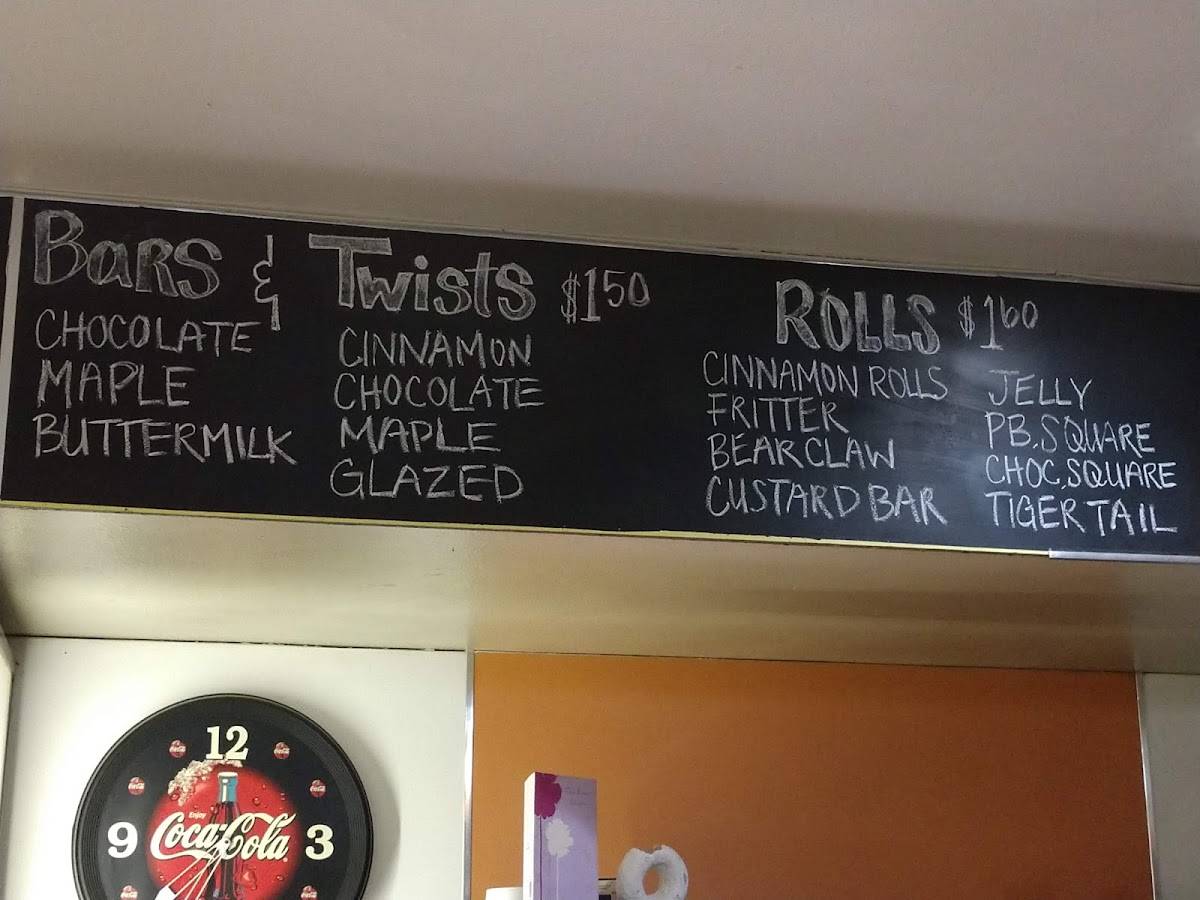 Bars & Twists $1.50
CHOCOLATE
MAPLE
BUTTERMILK
CINNAMON
CHOCOLATE
MAPLE
GLAZED
ROLLS $1.60
CINNAMON ROLLS
FRITTER
BEAR CLAW
CUSTARD BAR
JELLY
PB.SQUARE
CHOC.SQUARE
TIGER TAIL
12
9
3
Enjoy
Coca-Cola